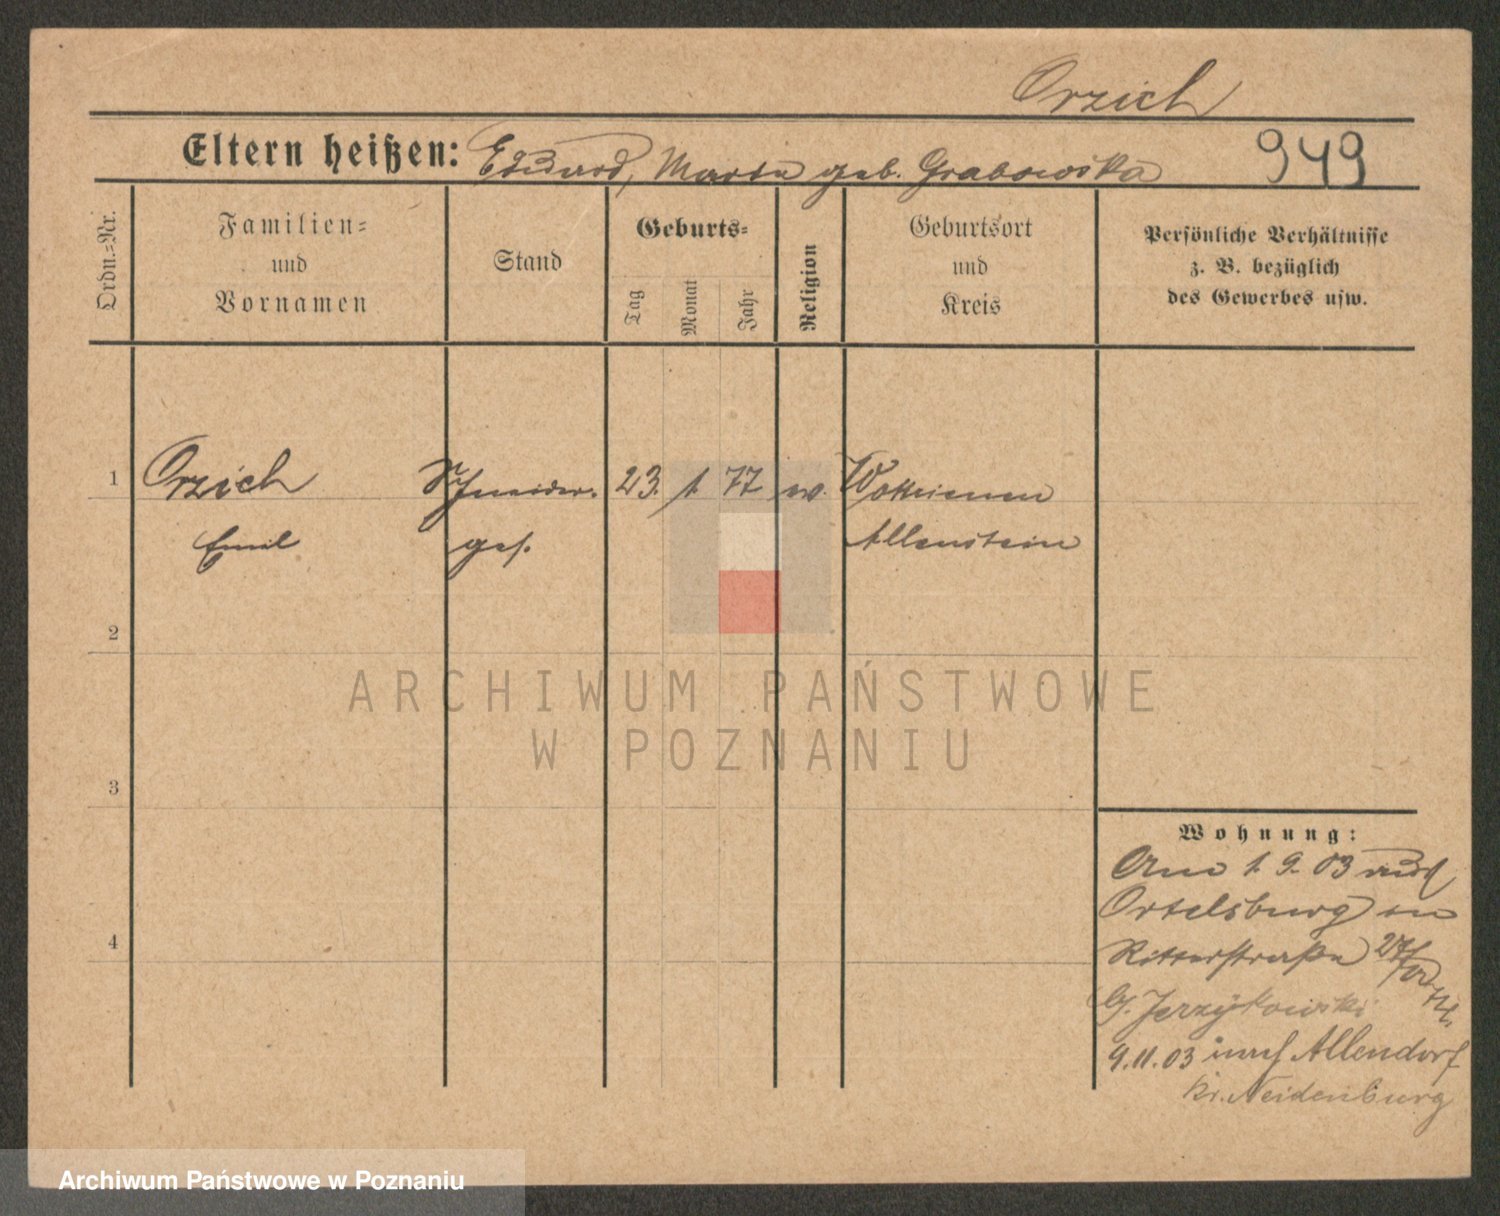 Orzich
Eltern heißen: Eduard, Marta geb. Grabowska 949
Ordn.=Nr.
Familien=
und
Vornamen
Stand
Geburts=
Tag
Monat
Jahr
Religion
Geburtsort
und
Kreis
Persönliche Verhältnisse
z. B. bezüglich
des Gewerbes usw.
1 Orzich Schneider. 23. 1. 77 ev. Wottrienen
Emil ges. Allenstein
2
3
4
ARCHIWUM PAŃSTWOWE
W POZNANIU
Wohnung:
Am 1. 9. 03 aus
Ortelsburg in
Ritterstraße 27
G. Jerzykowski
9. 11. 03 nach Allendorf
Kr. Neidenburg
Archiwum Państwowe w Poznaniu